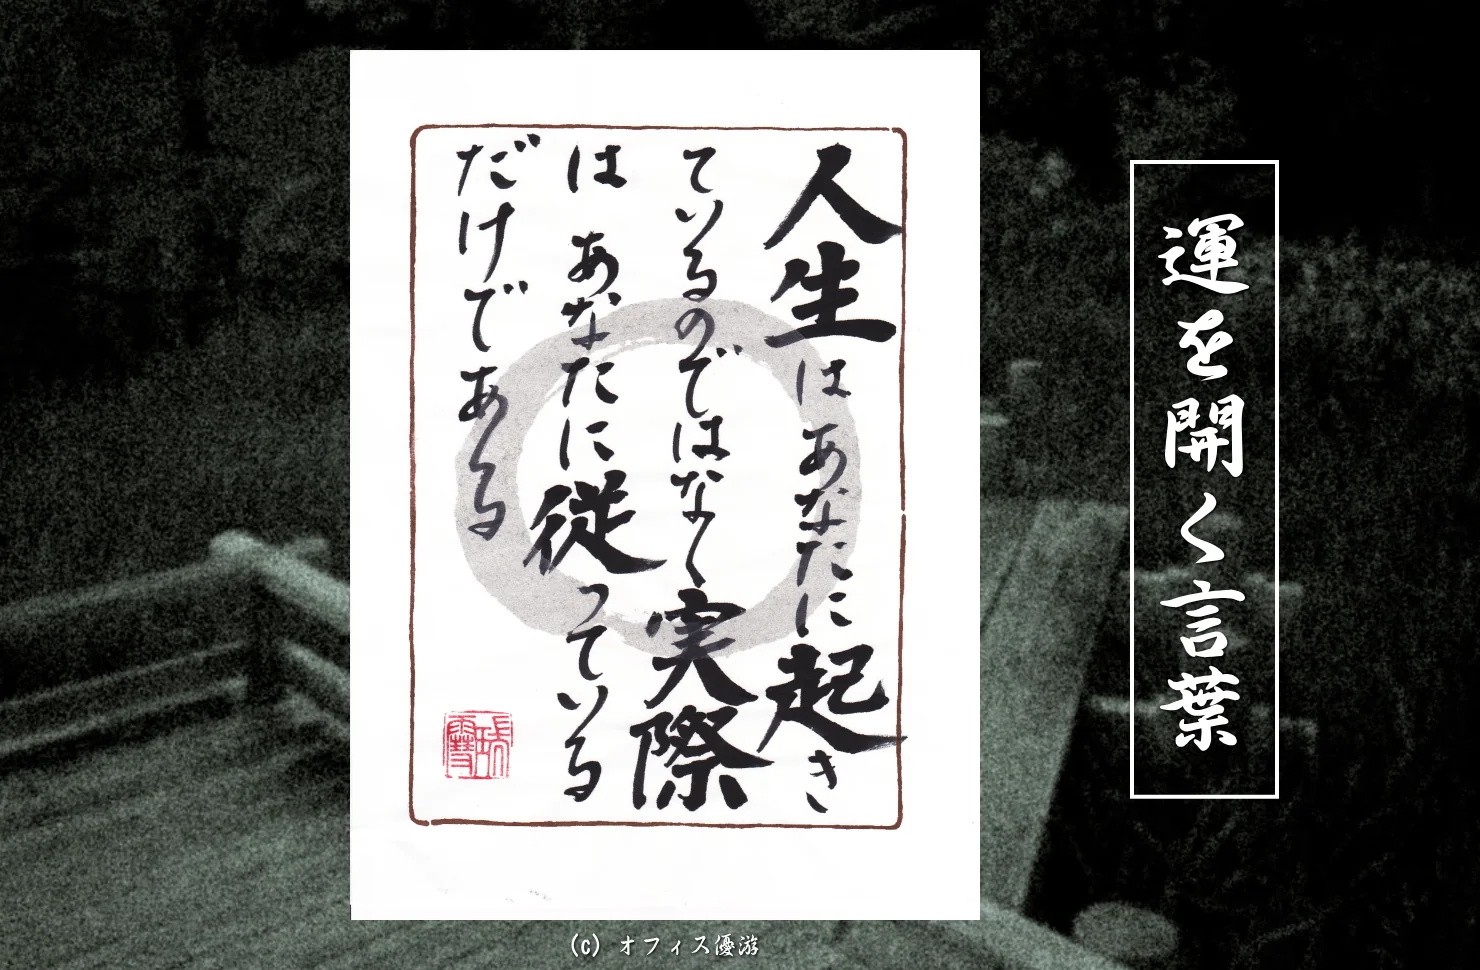 運を開く言葉
人生はあなたに起き
ているのではなく実際
は あなたに従っている
だけである
(c) オフィス優游